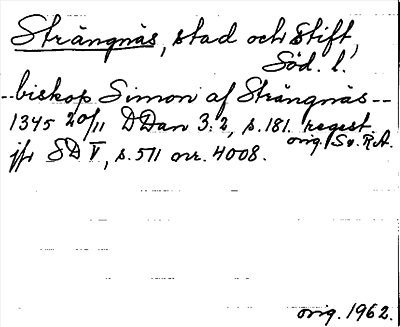 Strängnäs, stad och stift,
Söd. l.
--biskop Simon af Strängnäs--
1345 20/11 DDan 3:2, s.181. regest.
orig. Sv. R.A.
jfr SD V, s.511 nr. 4008.
orig. 1962.